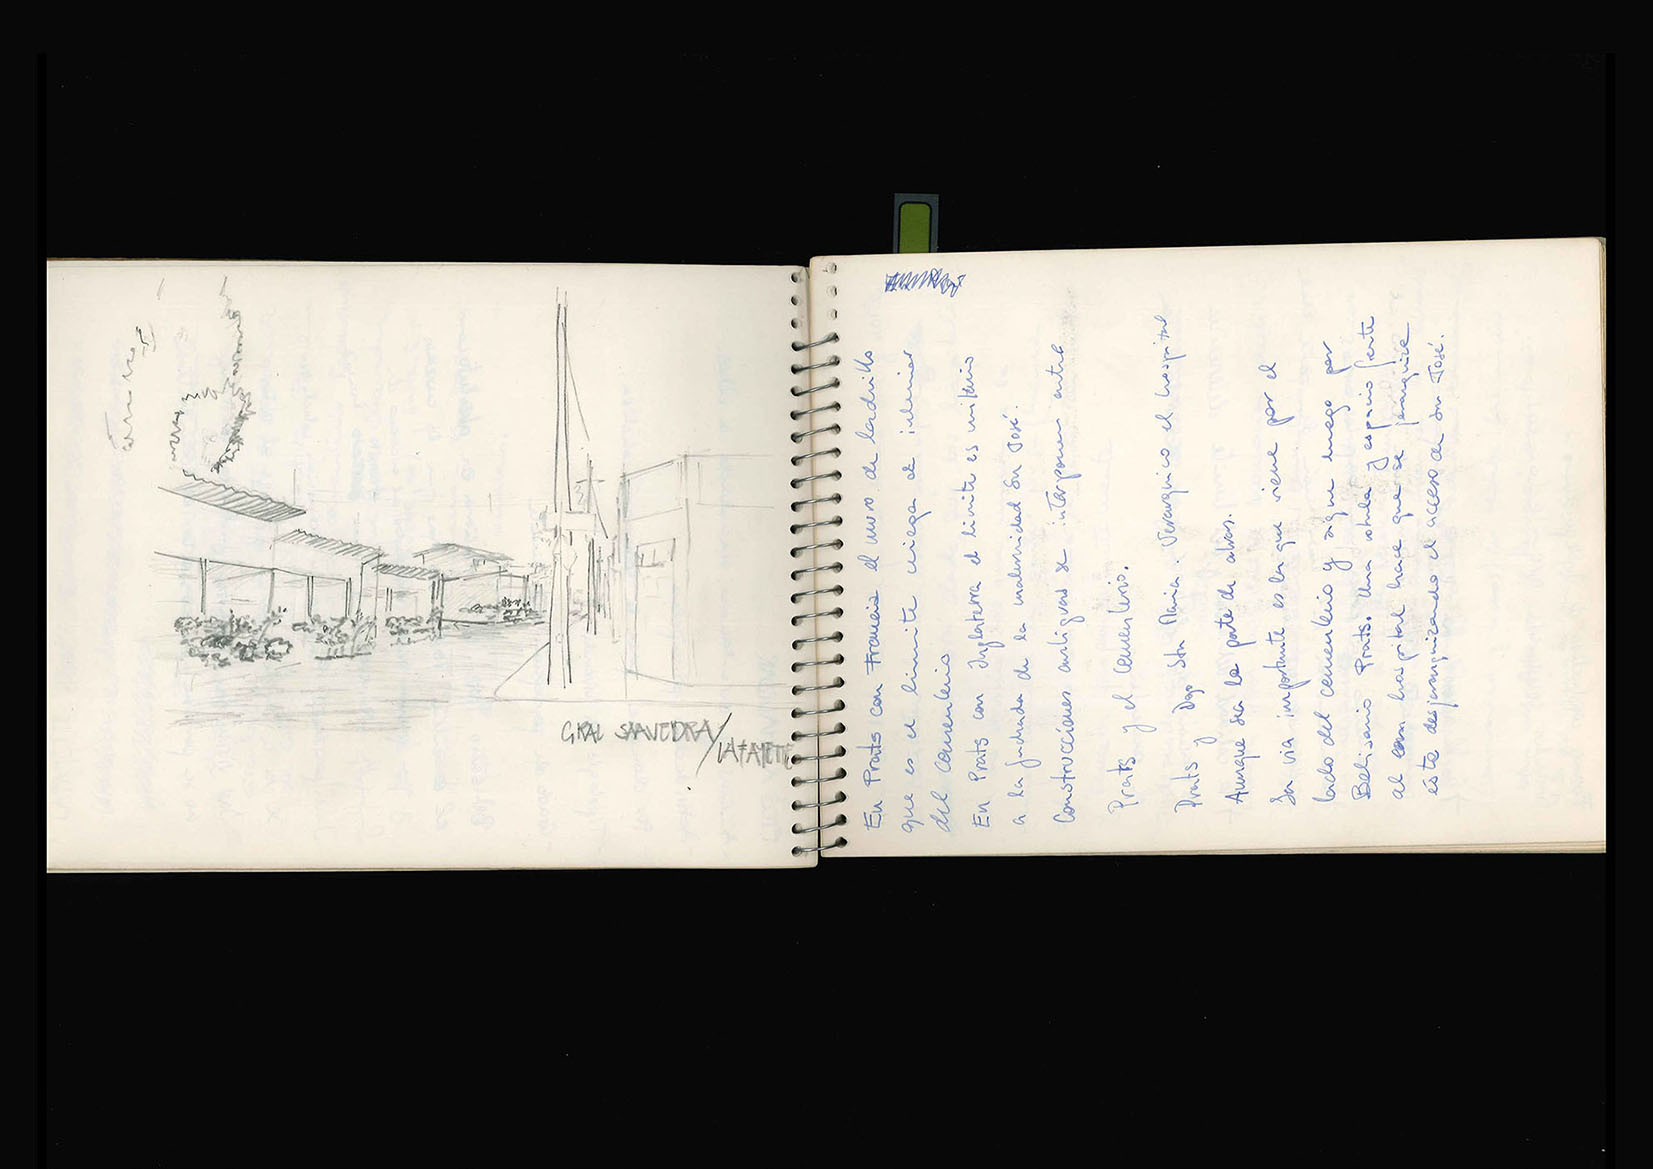 GRAL SAAVEDRA/
LAFAYETTE
En Prats con Francia el muro de ladrillo
que es el límite ciega de interior
del cementerio
En Prats con Inglaterra el límite es unitario
a la fachada de la maternidad Sn José.
Construcciones antiguas se interponen entre
Prats y el Cementerio.
Prats y Dgo Sta María. Jerarquico el hospital
Aunque sea la parte de atras.
Sn vía importante es la que viene por el
lado del cementerio y sigue luego por
Belisario Prats. Una rotula y espacio frente
al hospital hace que se jerarquice
este desjerarquizando el acceso de Sn José.